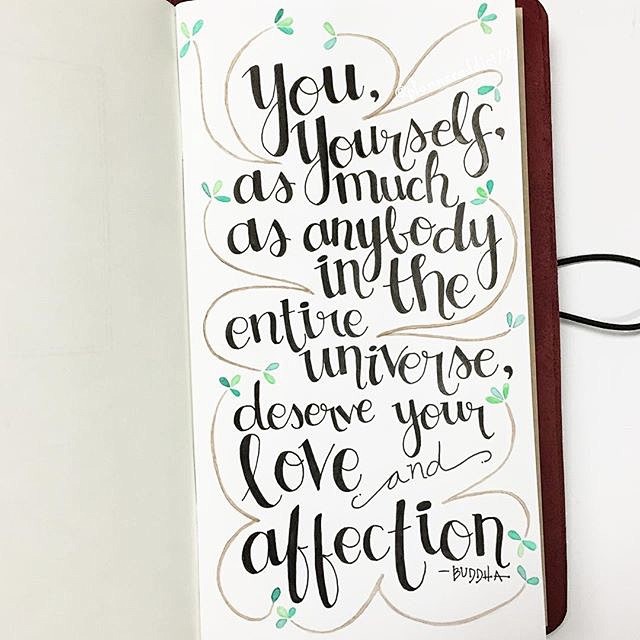 You,
yourself,
as much
as anybody
in the
entire
universe,
deserve your
love and
affection
-BUDDHA